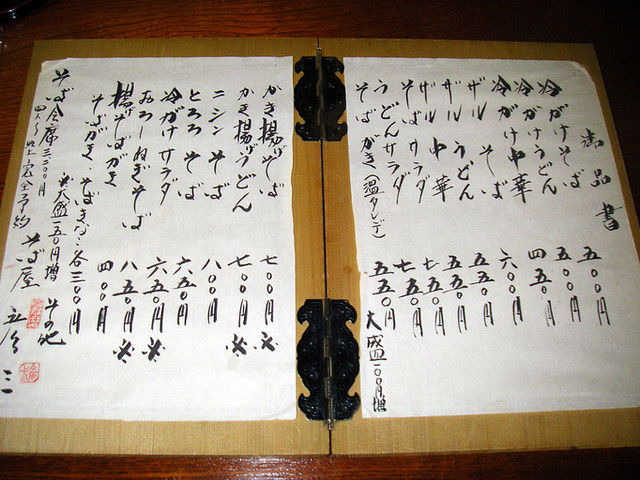 お品書
冷がけそば 五〇〇円
冷がけうどん 五〇〇円
冷がけ中華 四五〇円
ザルそば 六〇〇円
ザルうどん 五五〇円
ザル中華 五五〇円
そばサラダ 七五〇円
うどんサラダ 七五〇円
そばがき(温タレデ) 五五〇円
大盛一〇〇円増
かき揚げそば 七〇〇円 ※
かき揚げうどん 七〇〇円 ※
ニシンそば 八〇〇円
とろろそば 六五〇円
冷がけサラダ 六五〇円 ※
おろしねぎそば 八五〇円 ※
揚げそばがき 四〇〇円
そばがき そばきなこ 各三〇〇円
※大盛一五〇円増 その他
そば会席三三〇〇円 そば屋
四人〜以上完全予約